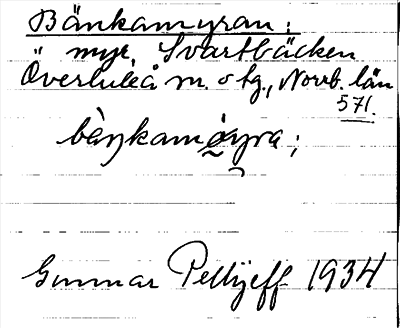 Bänkamyran:
" myr, Svartbäcken
Överluleå sn. o tg., Norrb. län
571.
Gunnar Pellijeff 1934